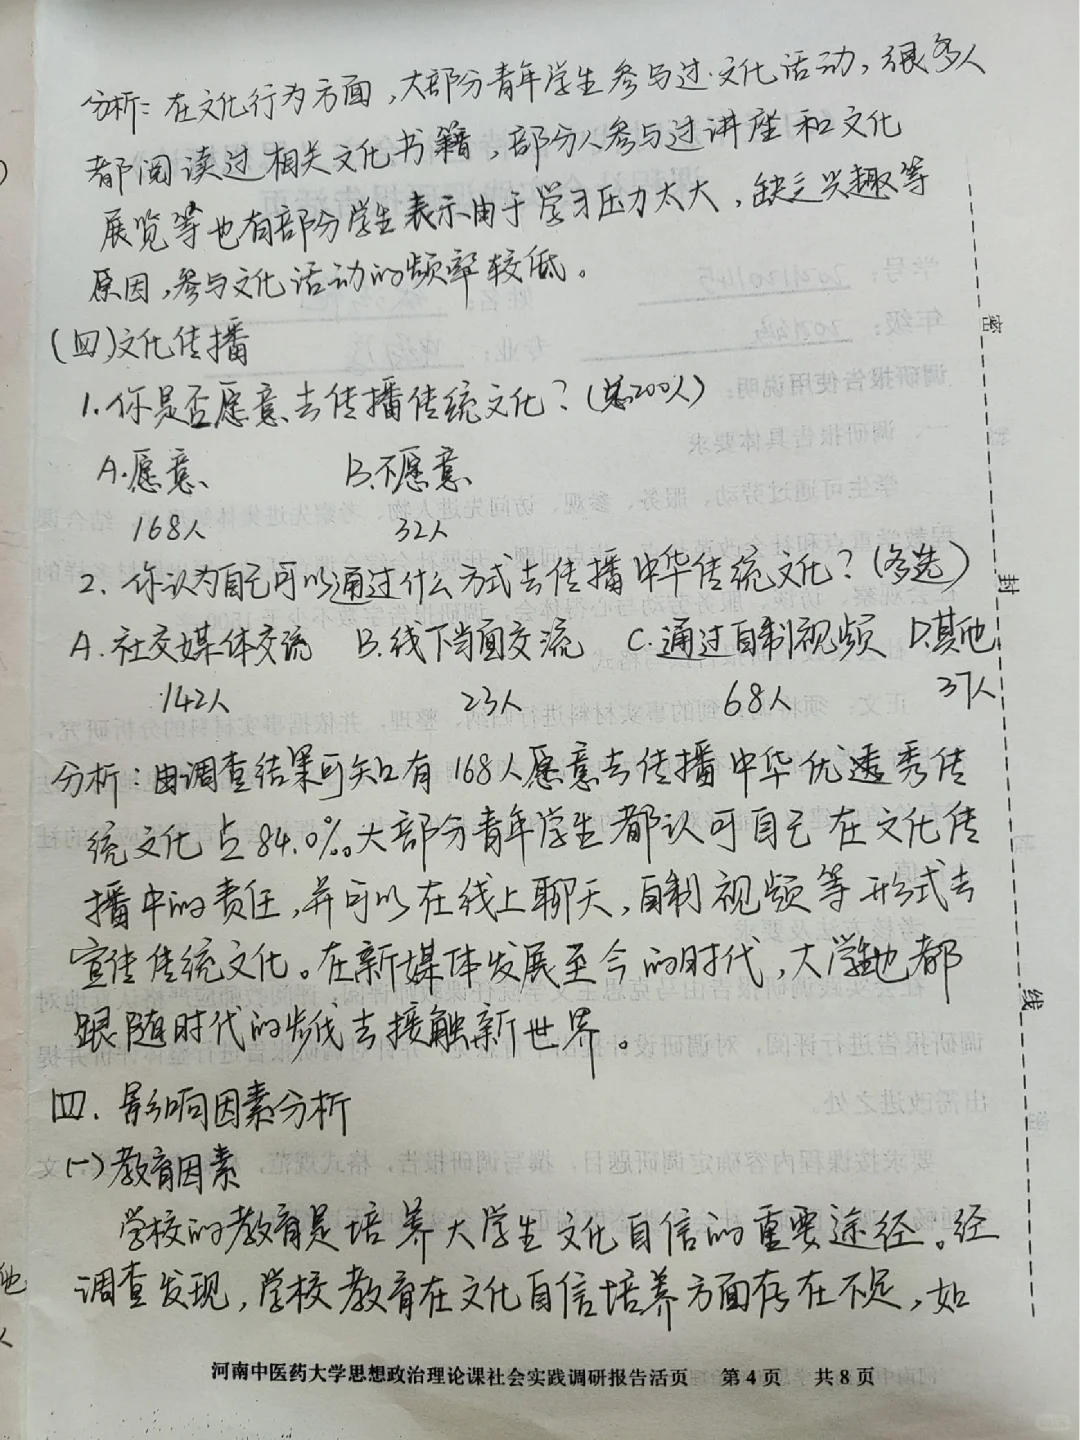 分析：在文化行为方面，大部分青年学生参与过文化活动，很多人
都阅读过相关文化书籍，部分人参与过讲座和文化
展览等也有部分学生表示由于学习压力太大，缺乏兴趣等
原因，参与文化活动的频率较低。
(四)文化传播
1.你是否愿意去传播传统文化？(总200人)
A.愿意 B.不愿意
168人 32人
2.你认为自己可以通过什么方式去传播中华传统文化？(多选)
A.社交媒体交流 B.线下当面交流 C.通过自制视频 D.其他
142人 23人 68人 37人
分析：由调查结果可知有168人愿意去传播中华优透秀传
统文化占84.0%。大部分青年学生都认可自己在文化传
播中的责任，并可以在线上聊天，自制视频等形式去
宣传传统文化。在新媒体发展至今的时代，大学生也都
跟随时代的步伐去接触新世界。
四.影响因素分析
(一)教育因素
学校的教育是培养大学生文化自信的重要途径。经
调查发现，学校教育在文化自信培养方面存在不足，如
密
封
线
河南中医药大学思想政治理论课社会实践调研报告活页 第4页 共8页
他
人